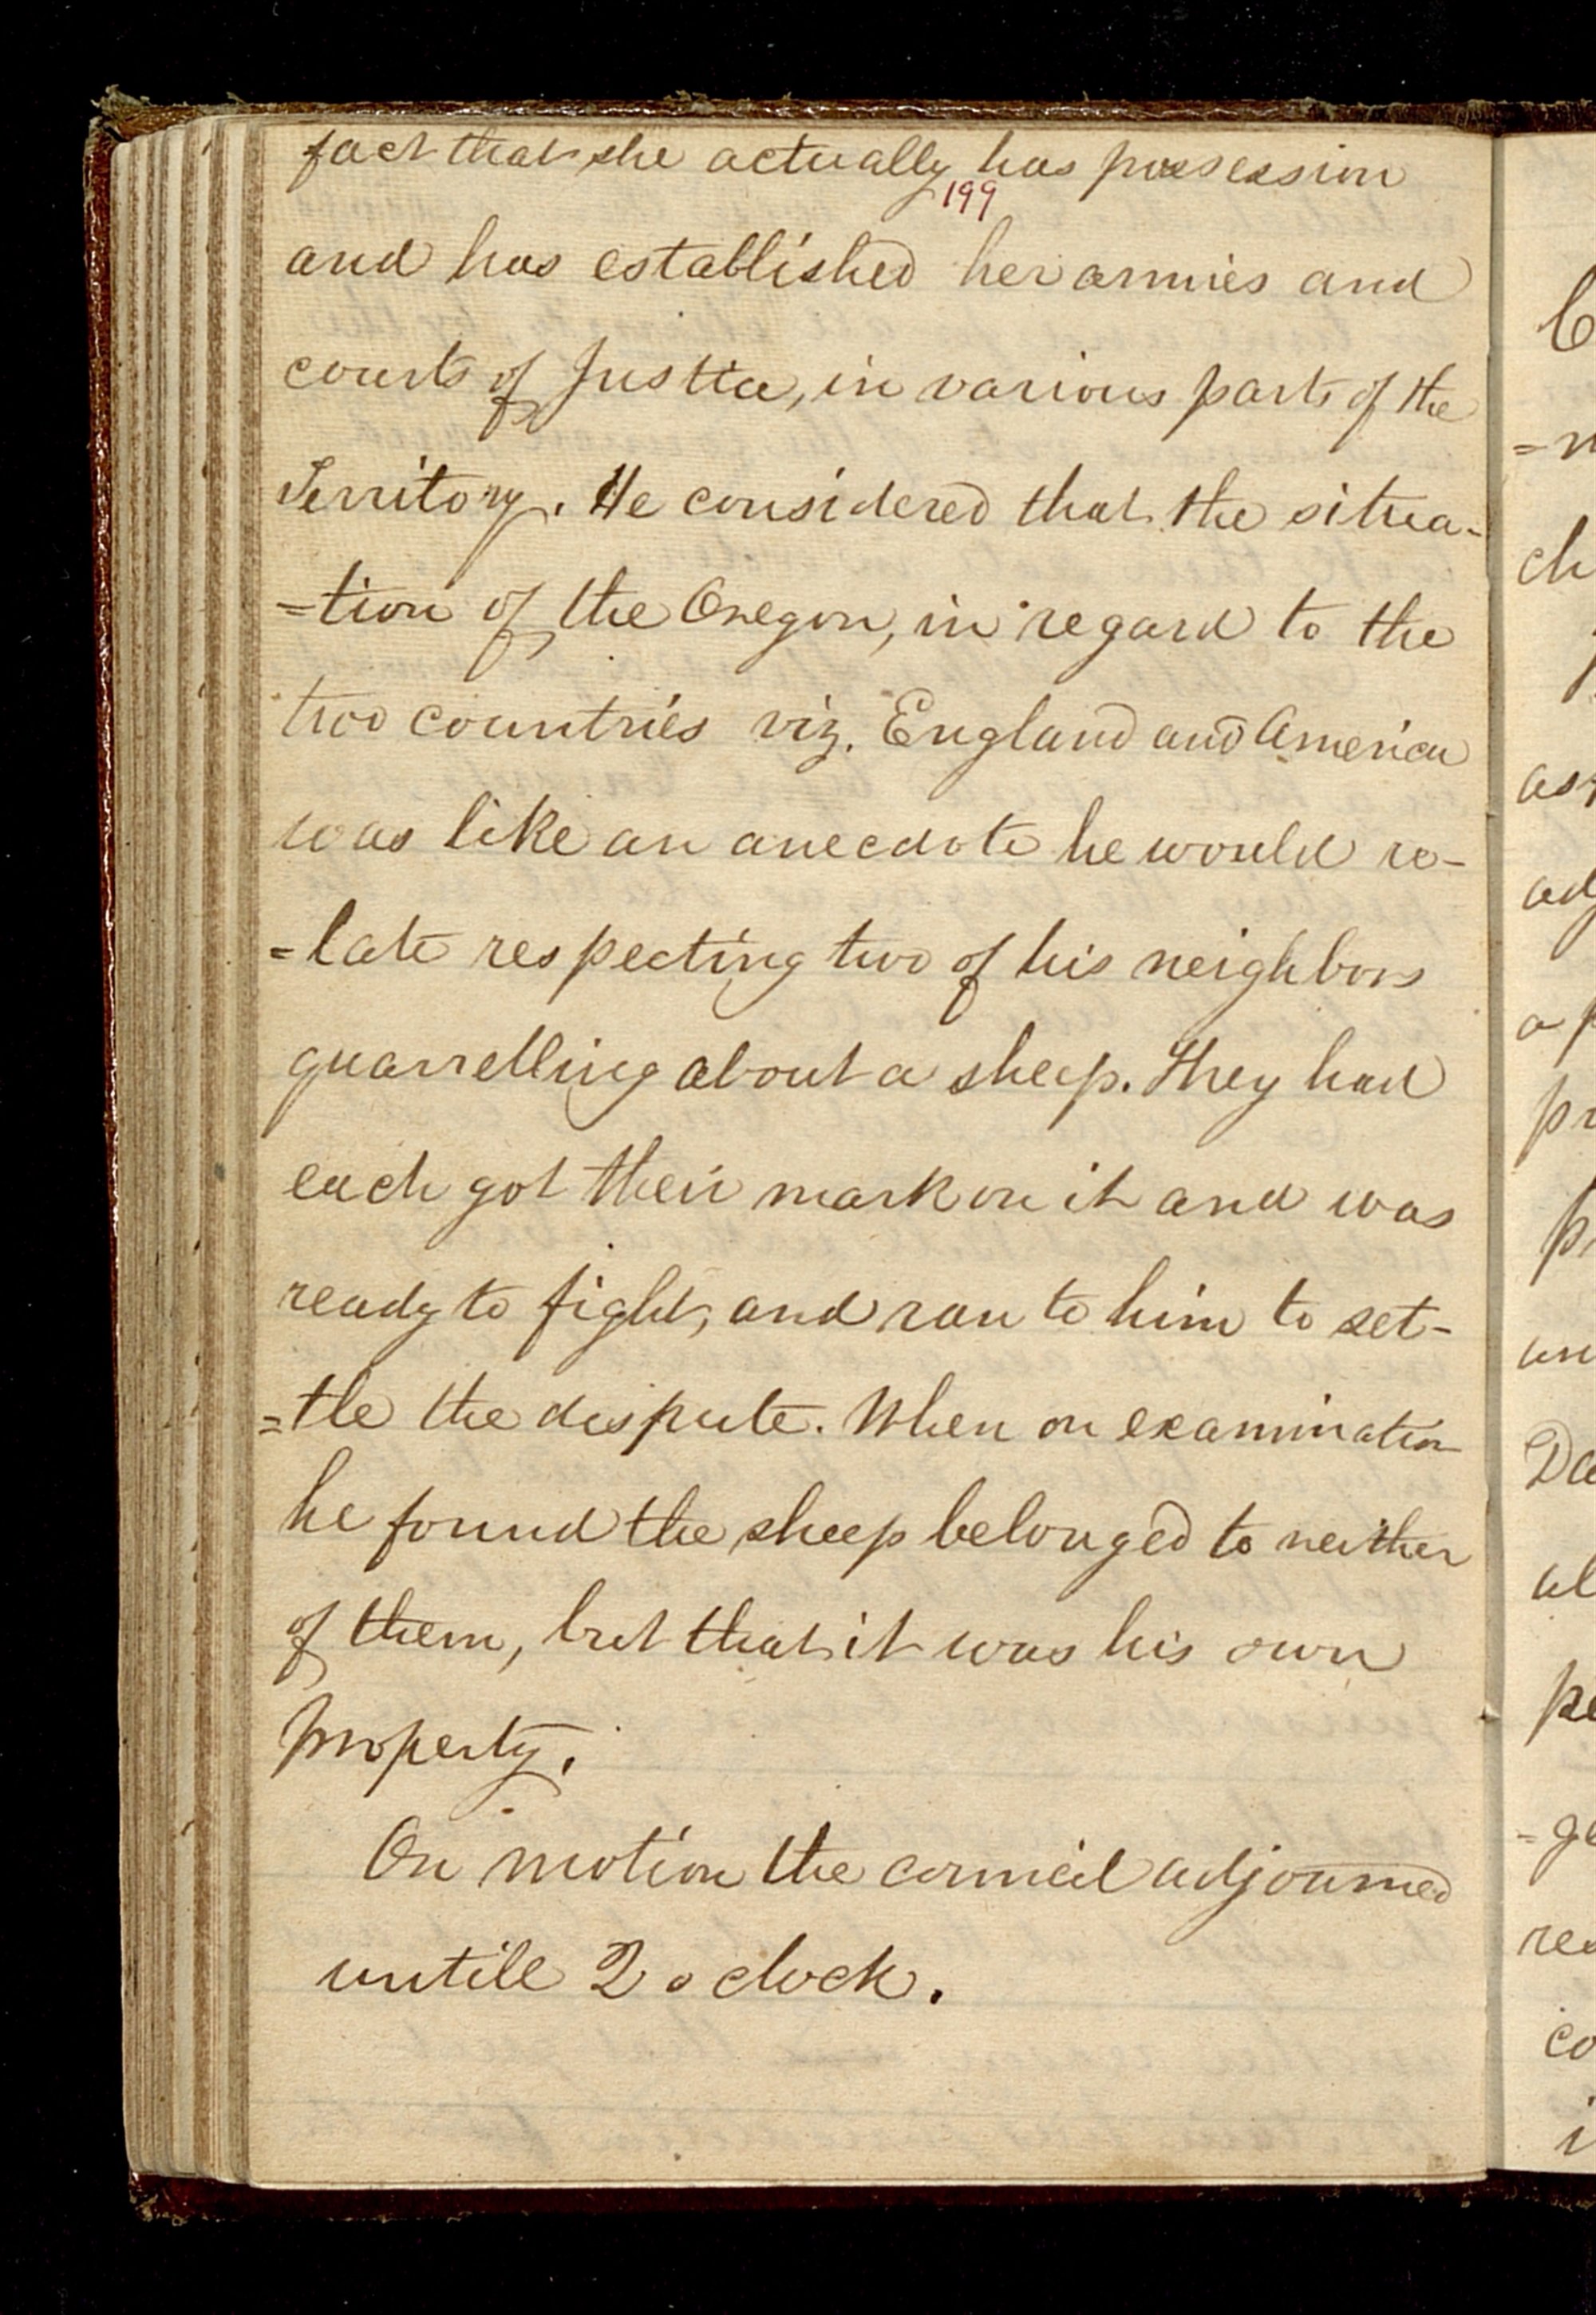 fact that she actually has possession
199
and has established her armies and
courts of Justice, in various parts of the
Territory. He considered that the situa-
=tion of the Oregon, in regard to the
two countries viz. England and America
was like an anecdote he would re-
=late respecting two of his neighbors
quarrelling about a sheep. They had
each got their mark on it and was
ready to fight, and ran to him to set-
=tle the dispute. When on examination
he found the sheep belonged to neither
of them, but that it was his own
property.
On motion the council adjourned
untill 2 o clock.